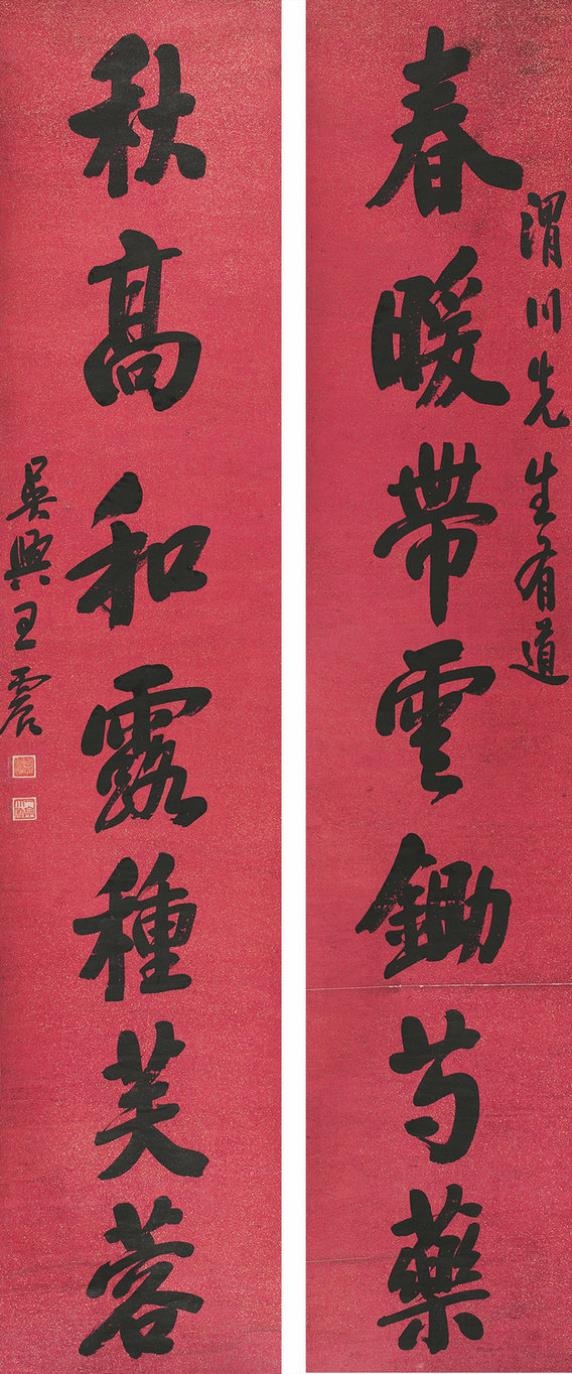 渭川先生有道
春暖帶雲鋤芍藥
秋高和露種芙蓉
吳興王震